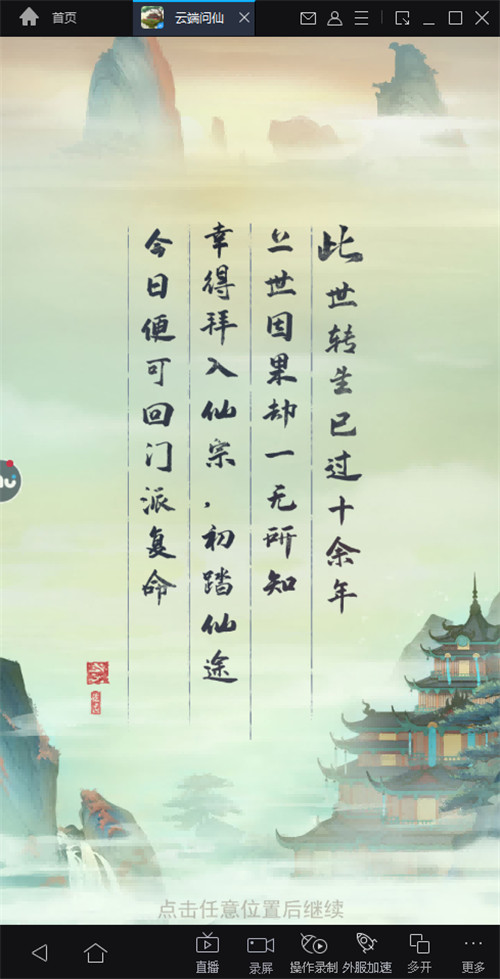 首页
云端问仙
此世转生已过十余年
上世因果却一无所知
幸得拜入仙宗，初踏仙途
今日便可回门派复命
点击任意位置后继续
直播
录屏
操作录制
外服加速
多开
更多